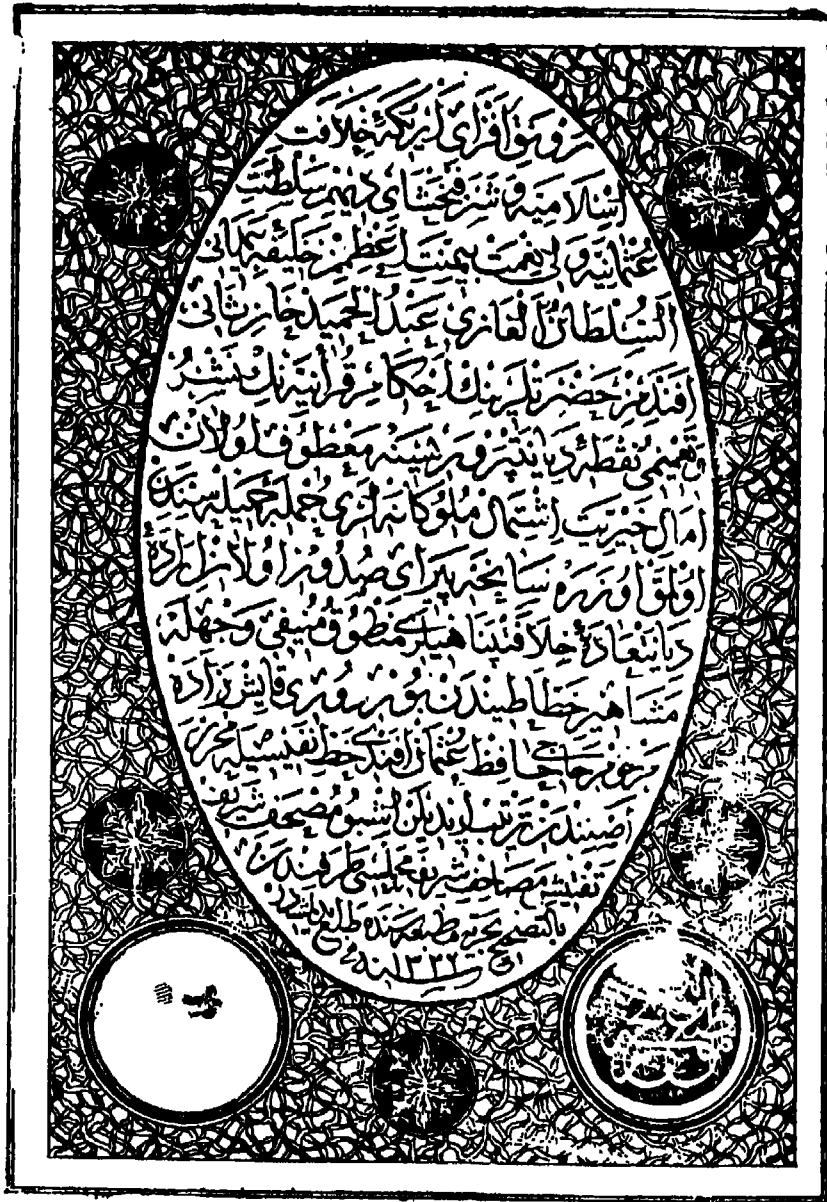 رونق افزای اریکهٔ خلافت
اسلامیه و شرفبخشای دیهیم سلطنت
عثمانیه ولی نعمت بیمنت اعظم خلیفهٔ
السلطان الغازی عبد الحمید خان ثانی
افندمز حضرتلرینك احکام قرآنیه نك نشر
و تعمیمی نقطهٔ دیانتپرورپسینه معطوف اولان
امال خیریت اشتمال ملوکانه لری جملهٔ جمیله سندن
اولمق اوزره سانحه پیرای صدور اولان ارادهٔ
دیانتعادهٔ خلافتپناهیلری منطوق منیفی وجهله
مشاهیر خطاطیندن بوردوری قایش زاده
مرحوم حاجی حافظ عثمان افندی خط نفیسیله محرر
اصلندن ترتیب ایدیلن اشبو مصحف شریف
تفتیش مصاحف شریفه مجلسی طرفندن
بالتصحیح بحریه مطبعه سنده طبع ایدلمشدر
فی سنه